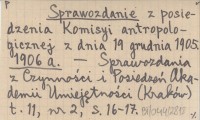 Sprawozdanie z posie-
dzenia Komisyi antropolo-
gicznej z dnia 19 grudnia 1905.
1906 a. — Sprawozdania
z Czynności i Posiedzeń Aka-
demii Umiejętności (Kraków)
t. 11, nr 2, s. 16-17.